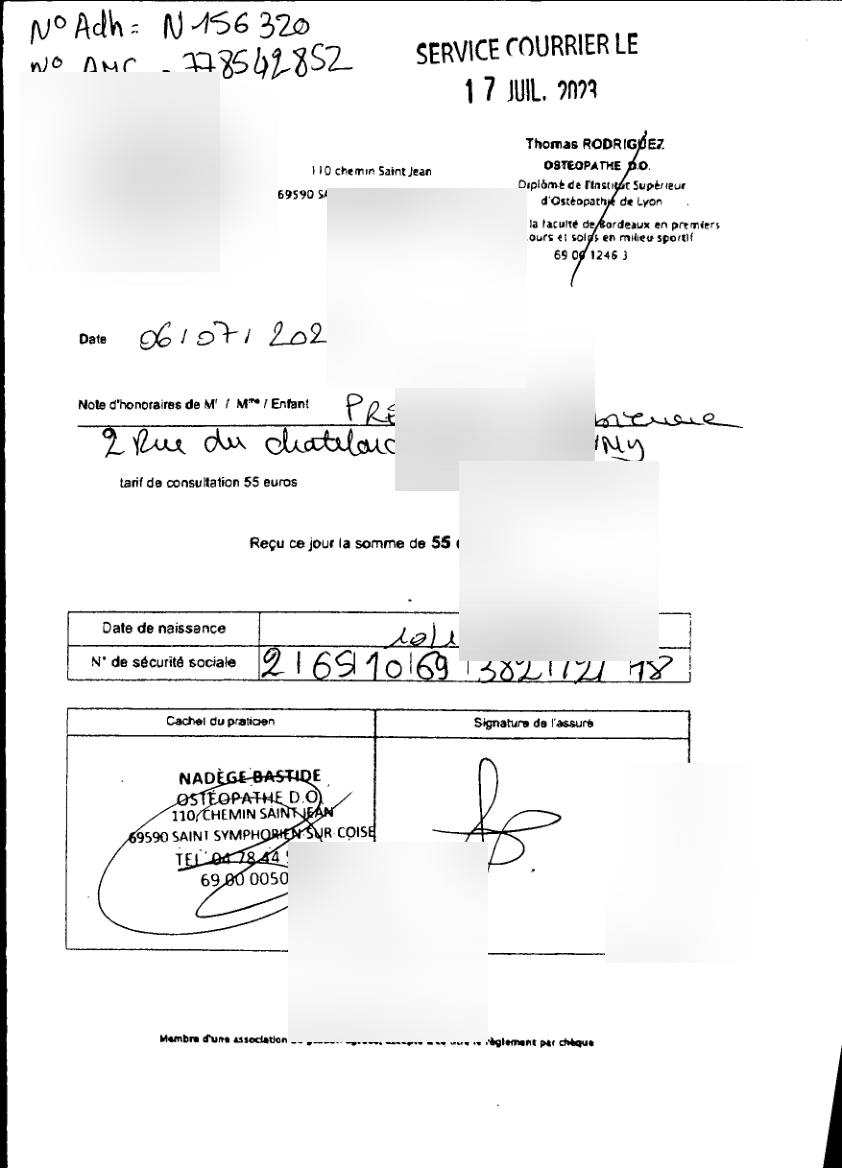 N° Adh = N 156 320
N° AMC - 778542852
SERVICE COURRIER LE
17 JUIL. 2023
Thomas RODRIGUEZ
OSTEOPATHE D.O.
Diplômé de l'Institut Supérieur
d'Ostéopathie de Lyon
la faculté de Bordeaux en premiers
ours et soins en milieu sportif
69 00 1246 3
110 chemin Saint Jean
69590
Date 06/07/202
Note d'honoraires de Mr / Mme / Enfant PRE
2 Rue du
tarif de consultation 55 euros
Reçu ce jour la somme de 55
Date de naissance 10/1
N° de sécurité sociale 2 65 10 69 382 121 78
Cachet du praticien Signature de l'assuré
NADÈGE BASTIDE
OSTÉOPATHE D.O
110, CHEMIN SAINT JEAN
69590 SAINT SYMPHORIEN SUR COISE
TEL 04 78 44
69 00 0050
Membre d'une association règlement par chèque